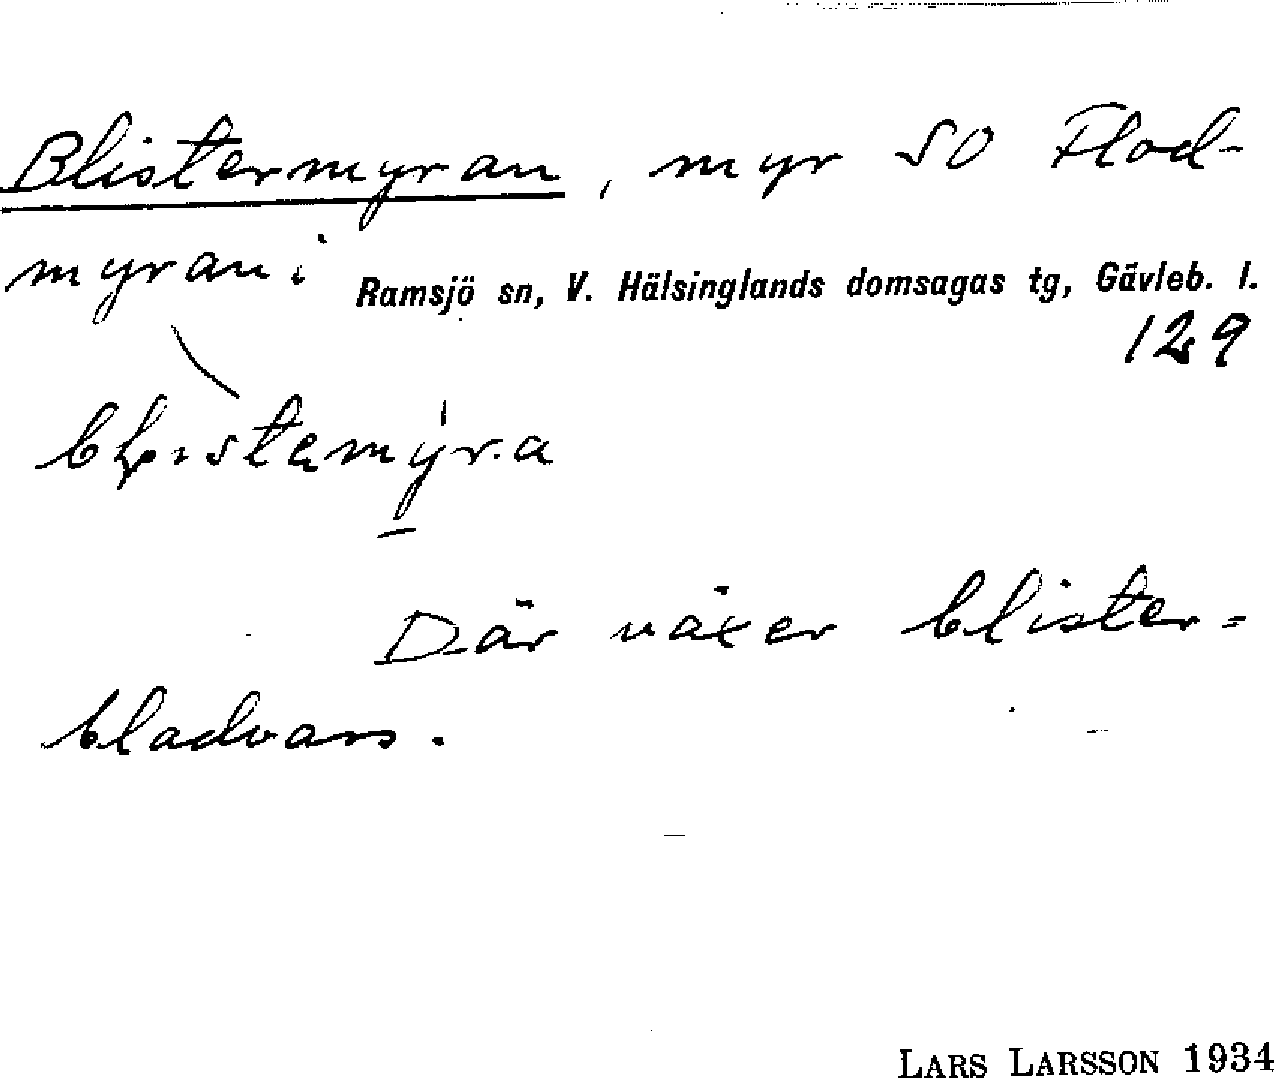 Blistermyran, myr SO Flod-
myran i Ramsjö sn, V. Hälsinglands domsagas tg, Gävleb. l.
129
Där växer blister-
bladvass.
LARS LARSSON 1934